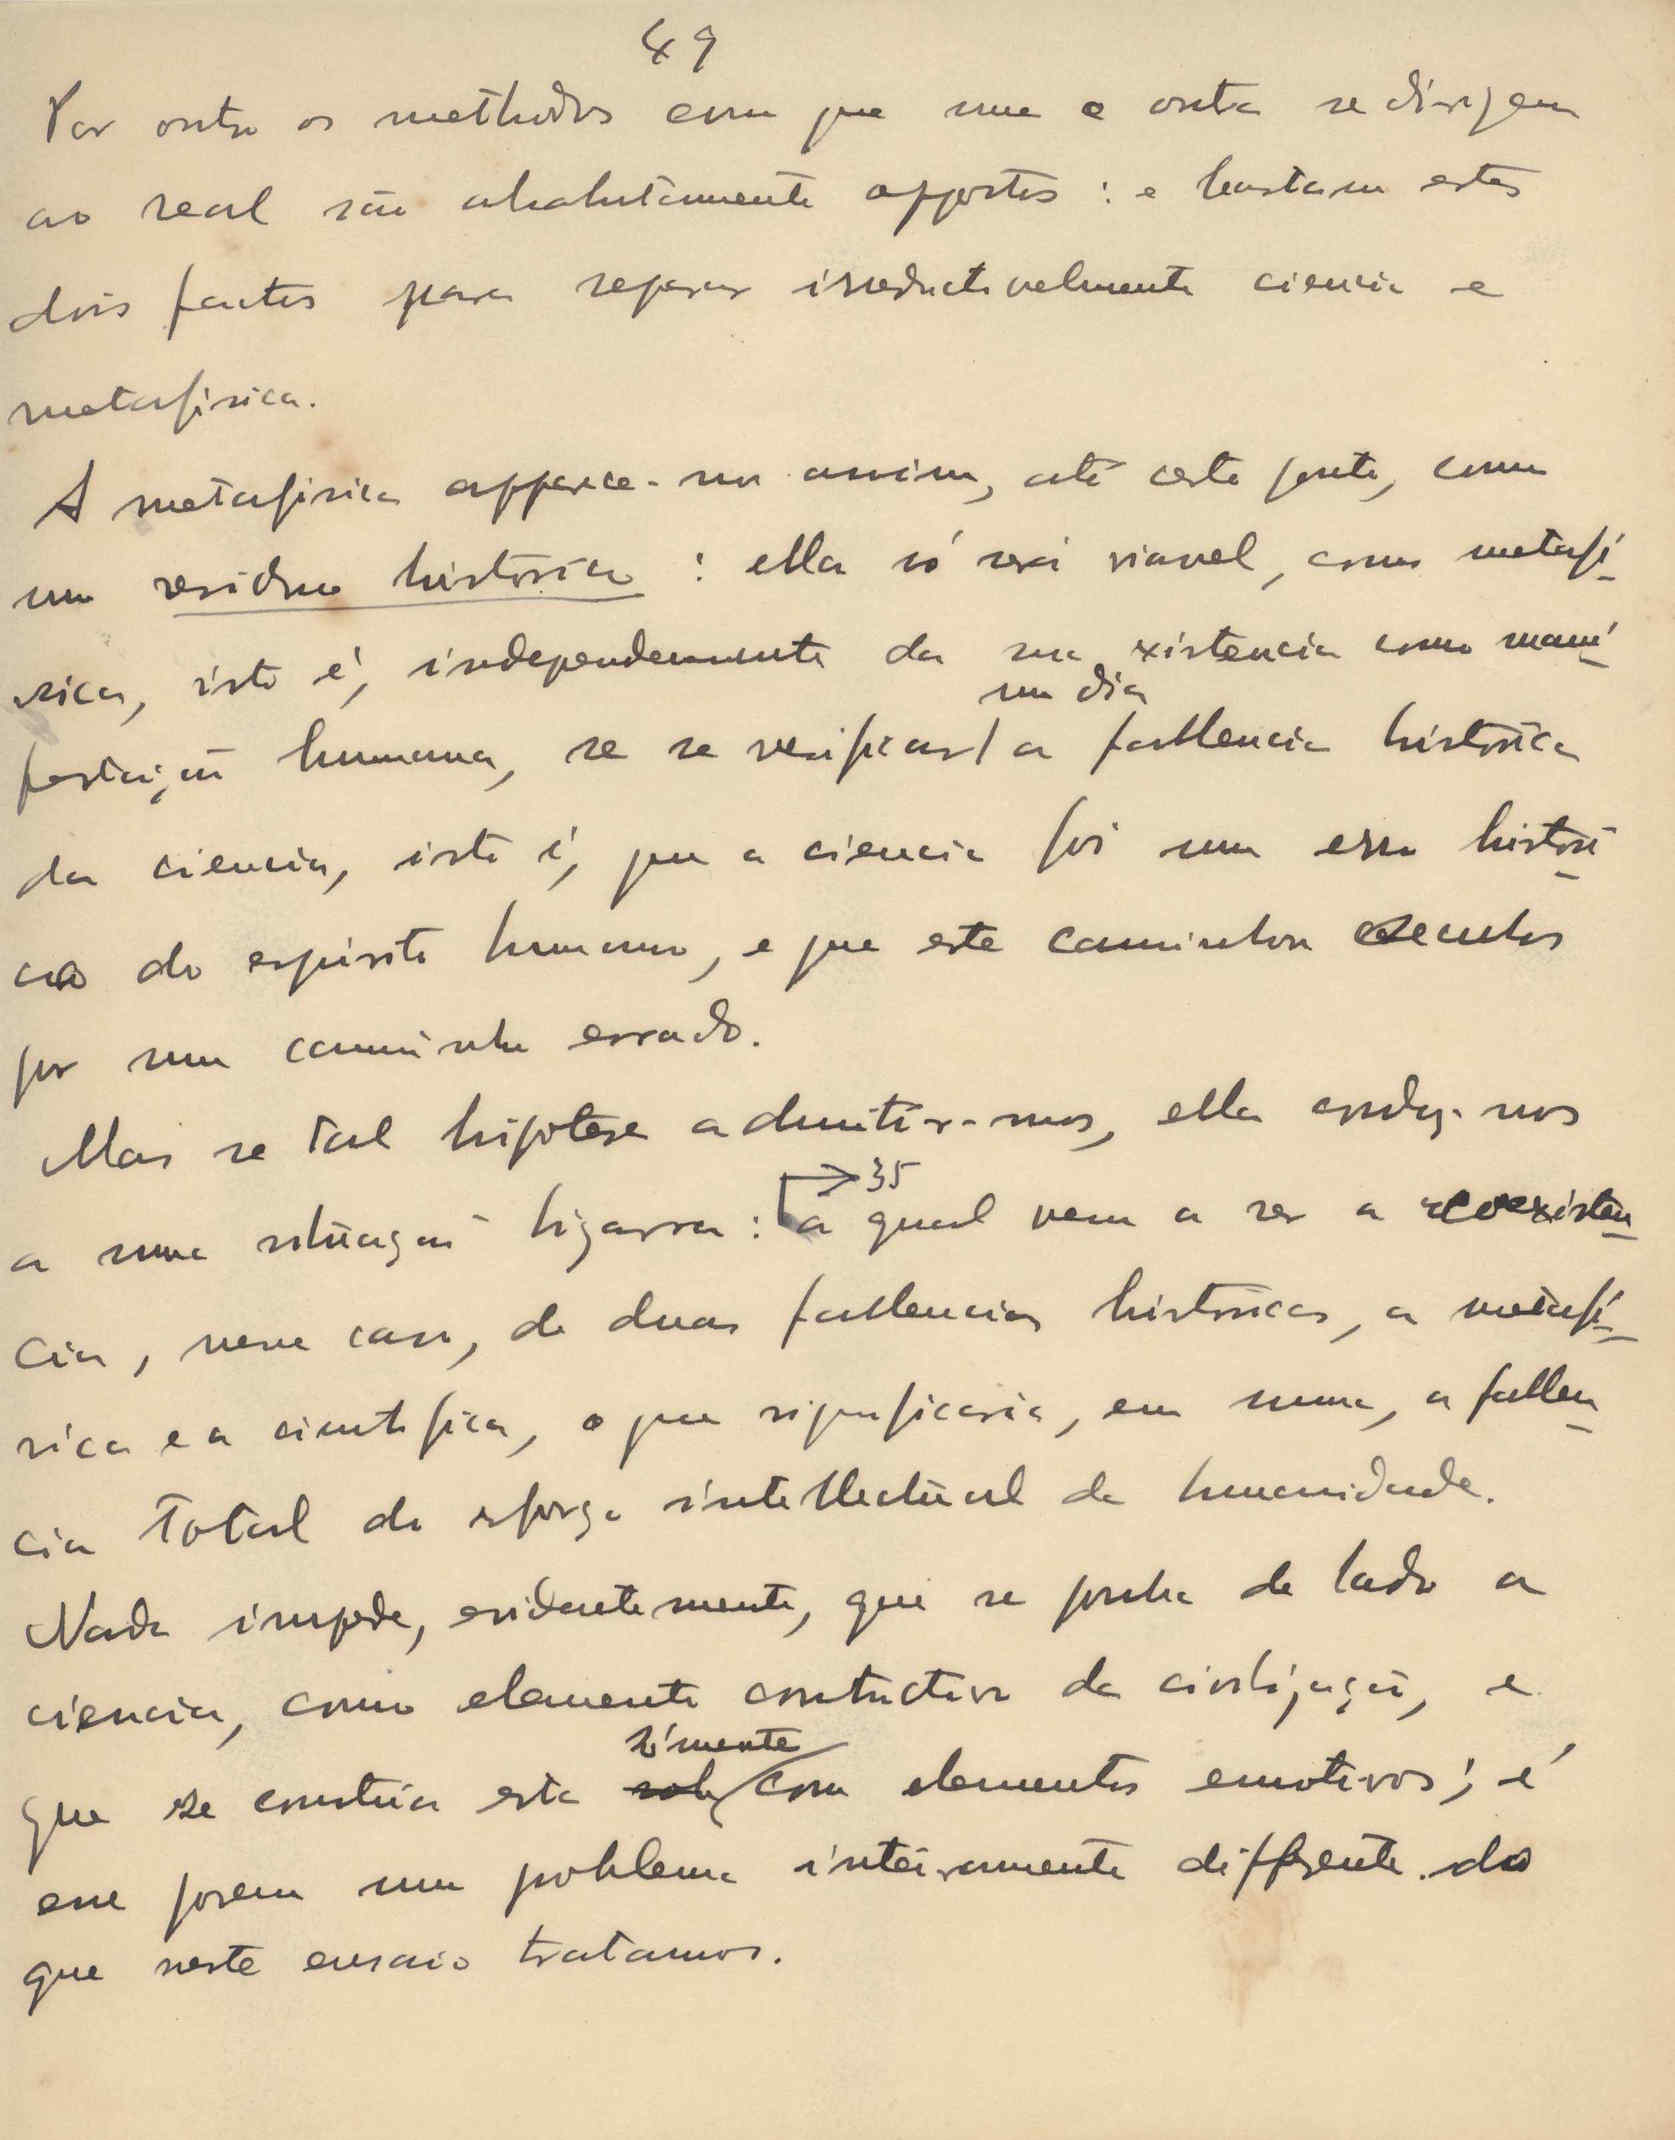 49
Por outro os methodos com que uma e outra se dirigem
ao real são absolutamente oppostos : e bastam estes
dois factos para separar irreductivelmente ciencia e
metafisica.
A metafisica apparece-nos assim, até certo ponto, como
um residuo historico : ella só será viavel, como metafi-
sica, isto é, independemente da sua existencia como mani-
um dia
festação humana, se se verificar / a fallencia historica
da ciencia, isto é, que a ciencia foi um erro histori-
co do espirito humano, e que este caminhou seculos
por um caminho errado.
Mas se tal hipotese admitir-mos, ella conduz-nos
→ 35
a uma situação bizarra : a qual vem a ser a coexisten-
cia, nesse caso, de duas fallencias historicas, a metafi-
sica e a cientifica, o que significaria, em suma, a fallen-
cia total do esforço intellectual da humanidade.
Nada impede, evidentemente, que se ponha de lado a
ciencia, como elemento constructivo da civilização, e
sómente
que se construa esta com elementos emotivos ; é
esse porem um problema inteiramente differente do
que neste ensaio tratamos.